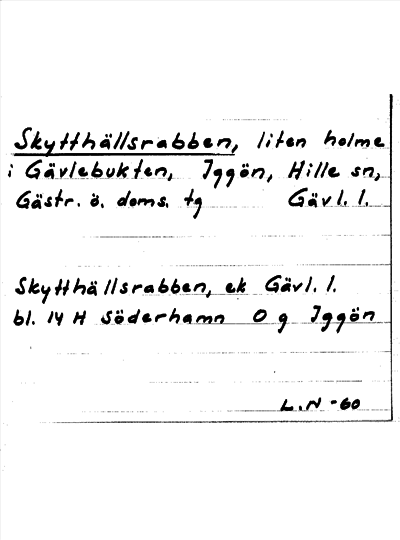 Skytthällsrabben, liten holme
i Gävlebukten, Iggön, Hille sn,
Gästr. ö. doms. tg Gävl. l.
Skytthällsrabben, ek Gävl. l.
bl. 14 H Söderhamn O g Iggön
L.N -60